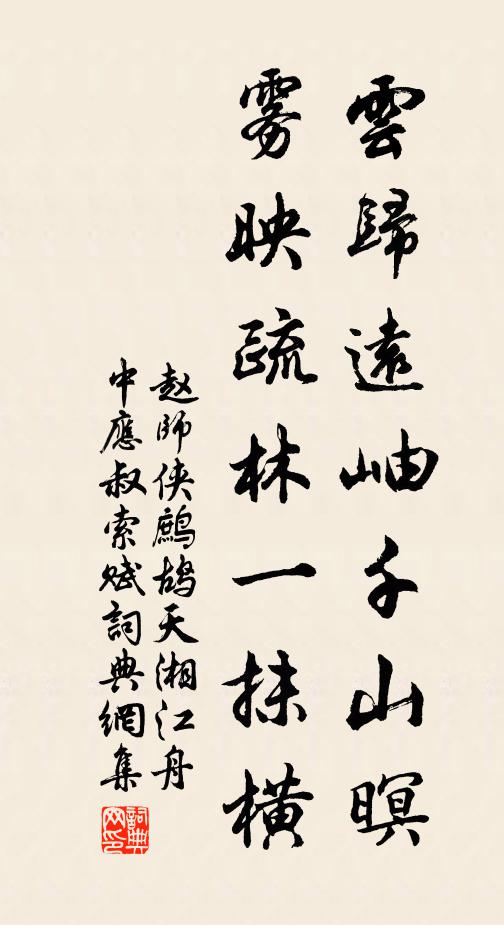 雲歸遠岫千山暝
雾映疏林一抹橫
赵師侠鷓鴣天湘江舟
中應叔索赋詞典網集
詞典
网印